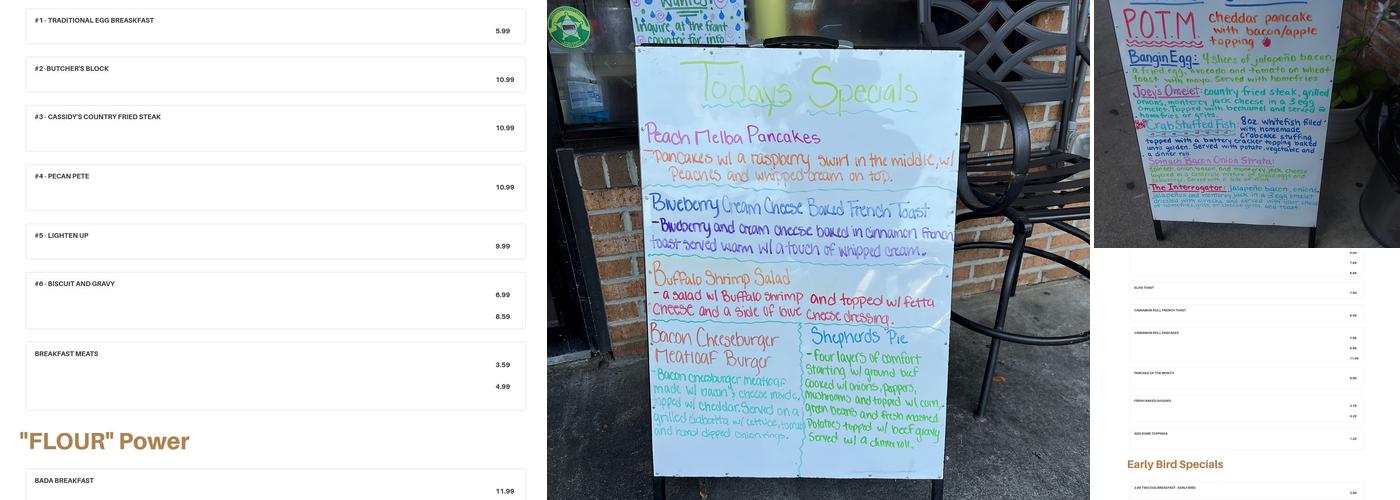 #1 - TRADITIONAL EGG BREAKFAST
5.99
#2 -BUTCHER'S BLOCK
10.99
#3 - CASSIDY'S COUNTRY FRIED STEAK
10.99
#4 - PECAN PETE
10.99
#5 - LIGHTEN UP
9.99
#6 - BISCUIT AND GRAVY
6.99
8.59
BREAKFAST MEATS
3.59
4.99
"FLOUR" Power
BADA BREAKFAST
11.99
Inquire at the front
counter for info
Todays Specials
Peach Melba Pancakes
-Pancakes w/ a raspberry swirl in the middle, w/
Peaches and whipped cream on top.
Blueberry Cream Cheese Baked French Toast
-Blueberry and cream cheese baked in cinnamon French
toast served warm w/ a touch of whipped cream.
Buffalo Shrimp Salad
- a salad w/ Buffalo shrimp and topped w/ fetta
cheese and a side of
cheese dressing.
Bacon Cheeseburger
Meatloaf Burger
-Bacon cheesburger meatloaf
made w/ bacon & cheese inside,
topped w/ cheddar. Served on a
grilled ciabatta w/ lettuce, tomato
and hand dipped onion rings.
Shepherds Pie
-Four layers of comfort
Starting w/ ground beef
cooked w/ onions, peppers,
mushrooms and topped w/ corn,
green beans and fresh mashed
Potatoes topped w/ beef gravy
Served w/ a dinner roll.
P.O.T.M.
cheddar pancake
with bacon/apple
topping
Bangin Egg: 4 slices of jalapeño bacon,
a fried egg, avocado and tomato on wheat
toast with mayo. Served with homefries
Joey's Omelet: country fried steak, grilled
onions, monterey jack cheese in a 3 egg
omelet. Topped with bechamel and served
homefries or grits.
Crab Stuffed Fish: 8oz. whitefish filled
with homemade
crabcake stuffing
topped with a buttery cracker topping baked
until golden. Served with potato, vegetable and
a dinner roll.
Spinach Bacon Onion Strata:
The Interrogator: jalapeño bacon, onions,
jalapeños and monterey jack in a 3 egg omelet
7.99
CINNAMON ROLL FRENCH TOAST
CINNAMON ROLL PANCAKES
11.99
PANCAKE OF THE MONTH
FRESH BAKED GOODIES
ADD SOME TOPPINGS
Early Bird Specials